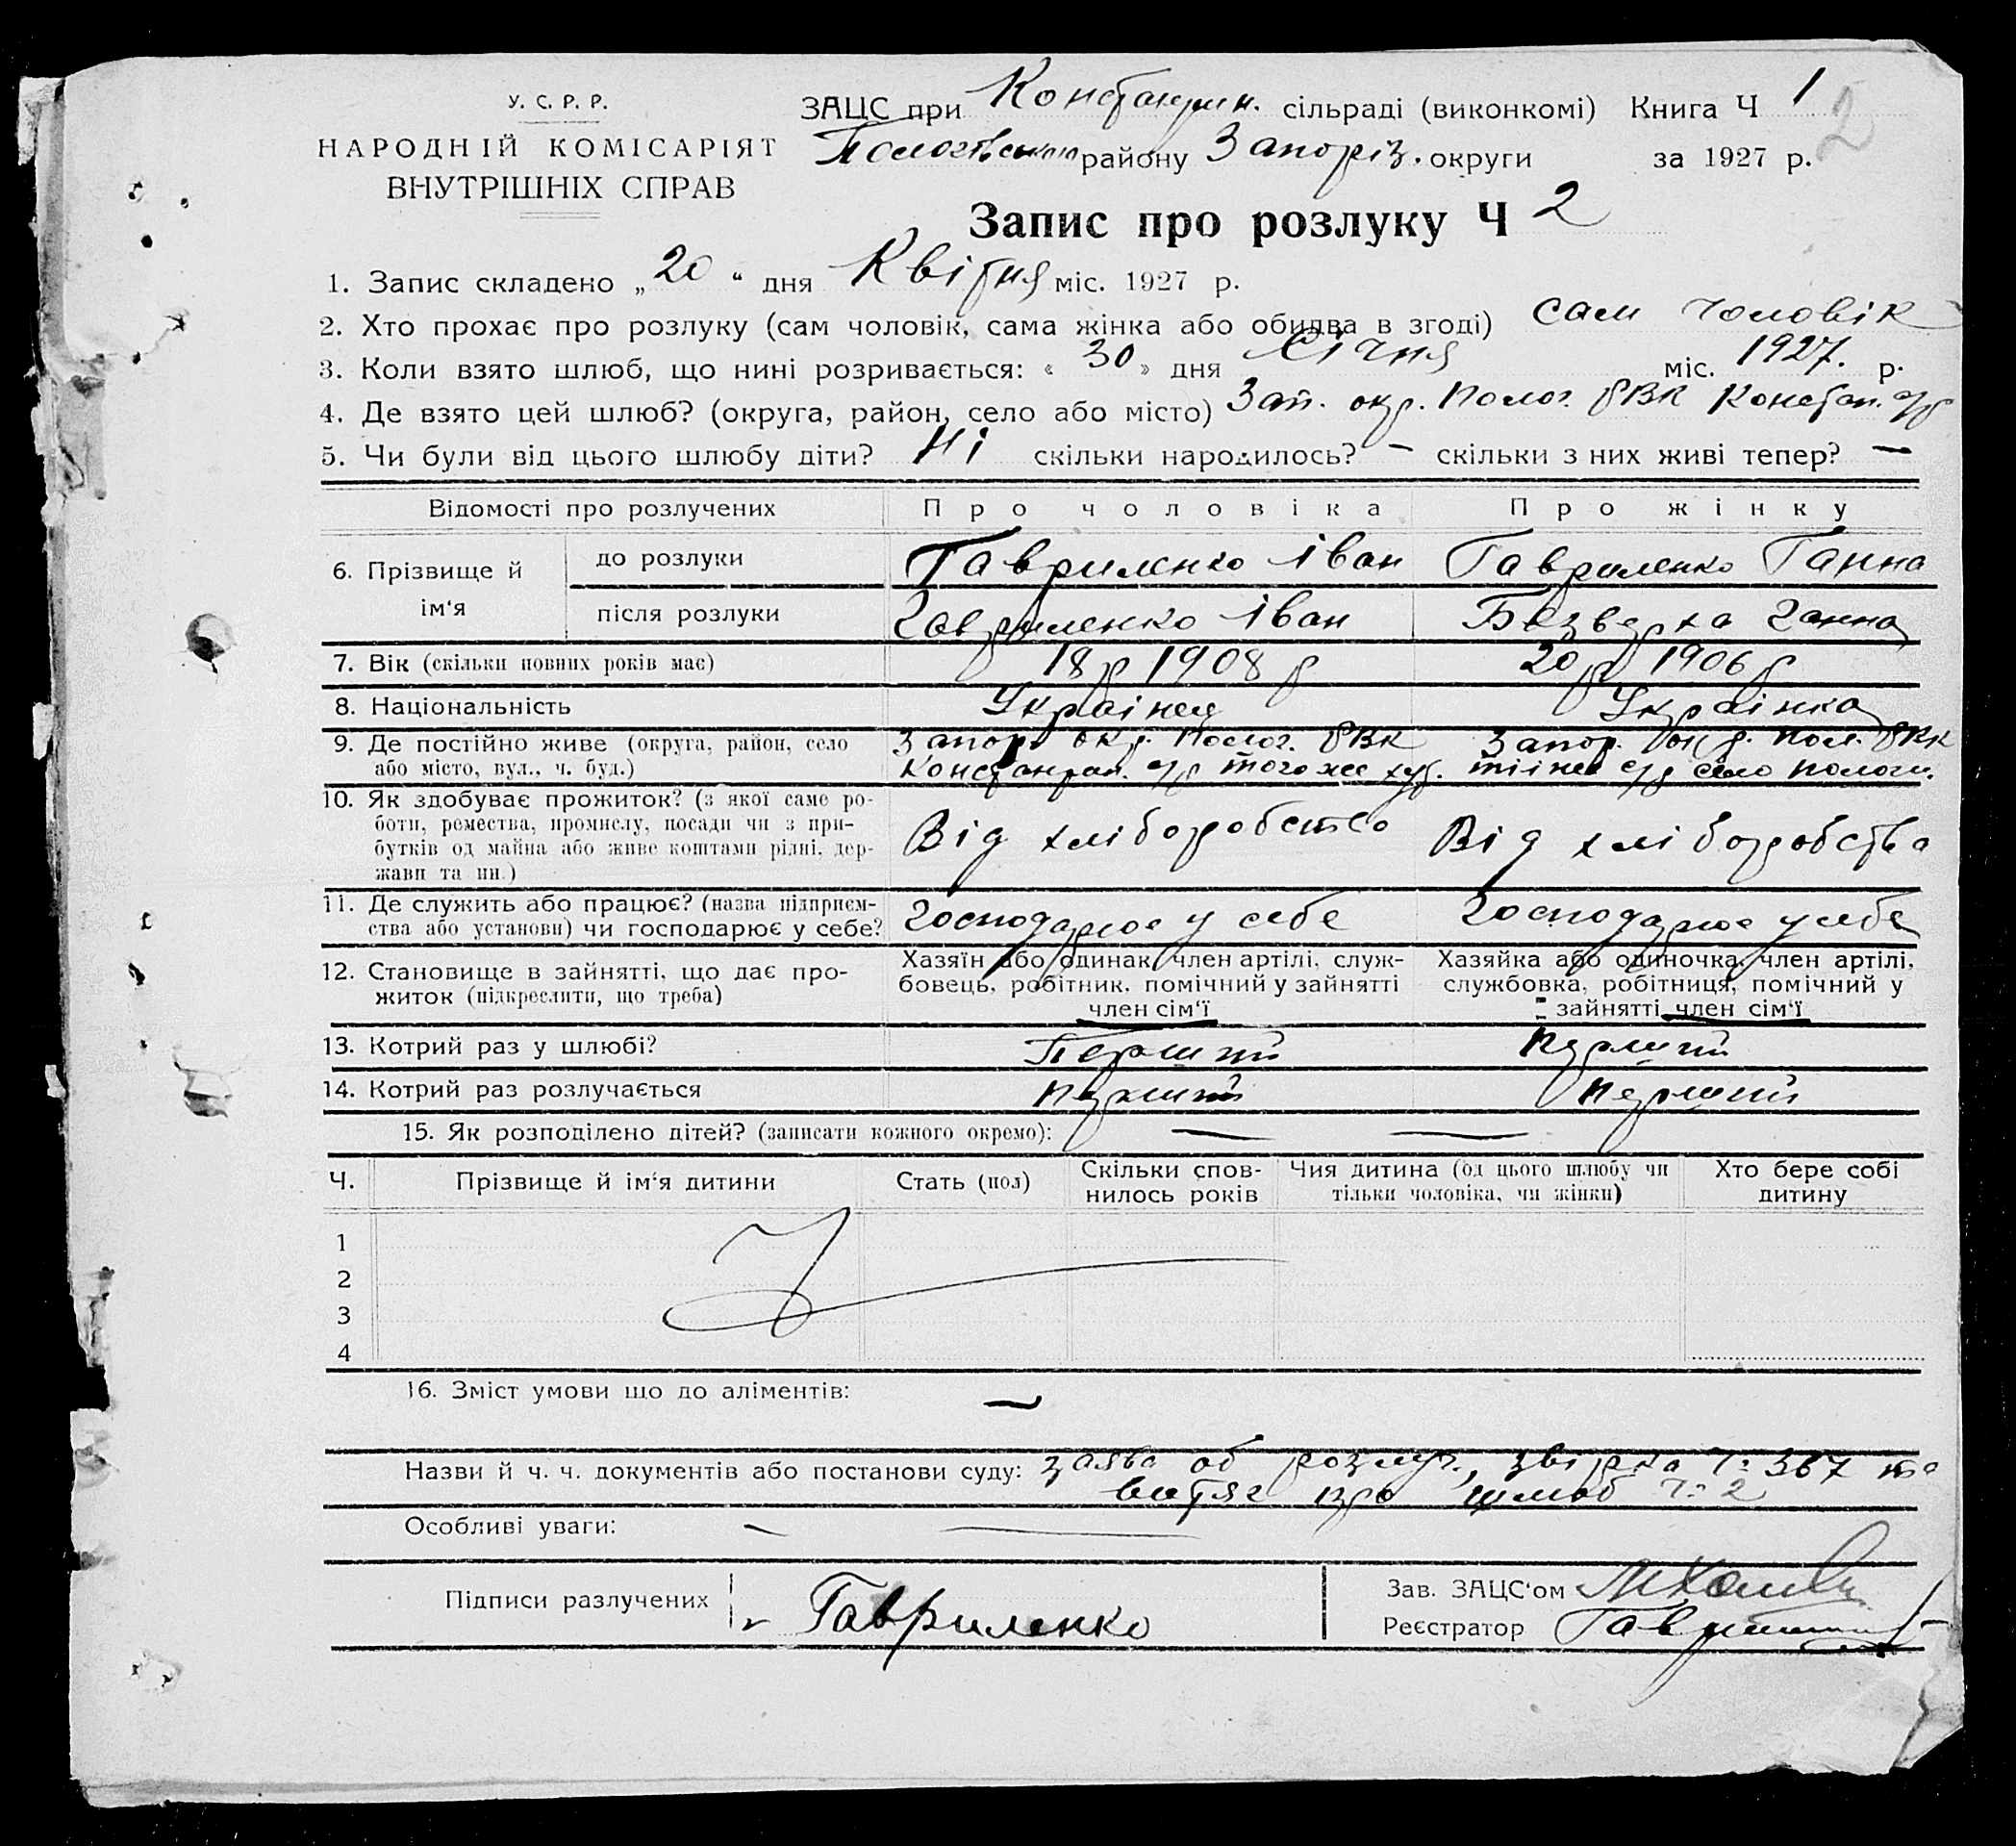 У. С. Р. Р.
НАРОДНІЙ КОМІСАРІЯТ
ВНУТРІШНІХ СПРАВ
ЗАЦС при Константин. сільраді (виконкомі) Книга Ч 1
2
Пологівського району Запоріз. округи за 1927 р.
Запис про розлуку Ч 2
1. Запис складено „20“ дня Квітня міс. 1927 р.
2. Хто прохає про розлуку (сам чоловік, сама жінка або обидва в згоді) сам чоловік
3. Коли взято шлюб, що нині розривається: «30» дня Січня міс. 1927. р.
4. Де взято цей шлюб? (округа, район, село або місто) Зап. окр. Полог. РВК Констан. с/р
5. Чи були від цього шлюбу діти? Ні скільки народилось? – скільки з них живі тепер? –
Відомості про розлучених Про чоловіка Про жінку
6. Прізвище й ім‘я до розлуки Гавриленко Іван Гавриленко Ганна
після розлуки Гавриленко Іван Безверха Ганна
7. Вік (скільки повних років має) 18 р 1908 р 20 р 1906 р
8. Національність Украінец Украінка
9. Де постійно живе (округа, район, село Запор. окр. Полог. РВК Запор. окр. Пол. РВК
або місто, вул., ч. буд.) Константин. с/р того же хут. тіі же с/р село Пологи.
10. Як здобуває прожиток? (з якої саме ро-
боти, ремества, промислу, посади чи з при-
бутків од майна або живе коштами рідні, дер-
жави та ин.) Від хліборобство Від хліборобства
11. Де служить або працює? (назва підприєм-
ства або установи) чи господарює у себе? Господарює у себе Господарює у себе
12. Становище в зайнятті, що дає про-
житок (підкреслити, що треба)
Хазяїн або одинак, член артілі, служ-
бовець, робітник, помічний у зайнятті
член сім‘ї
Хазяйка або одиночка, член артілі,
службовка, робітниця, помічний у
зайнятті член сім‘ї
13. Котрий раз у шлюбі? Перший Перший
14. Котрий раз розлучається Перший Перший
15. Як розподілено дітей? (записати кожного окремо): — —
Ч. Прізвище й ім‘я дитини Стать (пол) Скільки спов-
нилось років Чия дитина (од цього шлюбу чи
тільки чоловіка, чи жінки) Хто бере собі
дитину
1
2
3
4
16. Зміст умови що до аліментів: —
Назви й ч. ч. документів або постанови суду: заява об розлуч., звірка Ч: 367 та
витяг про шлюб Ч: 2
Особливі уваги: — —
Підписи разлучених Гавриленко
Зав. ЗАЦС‘ом
Реєстратор